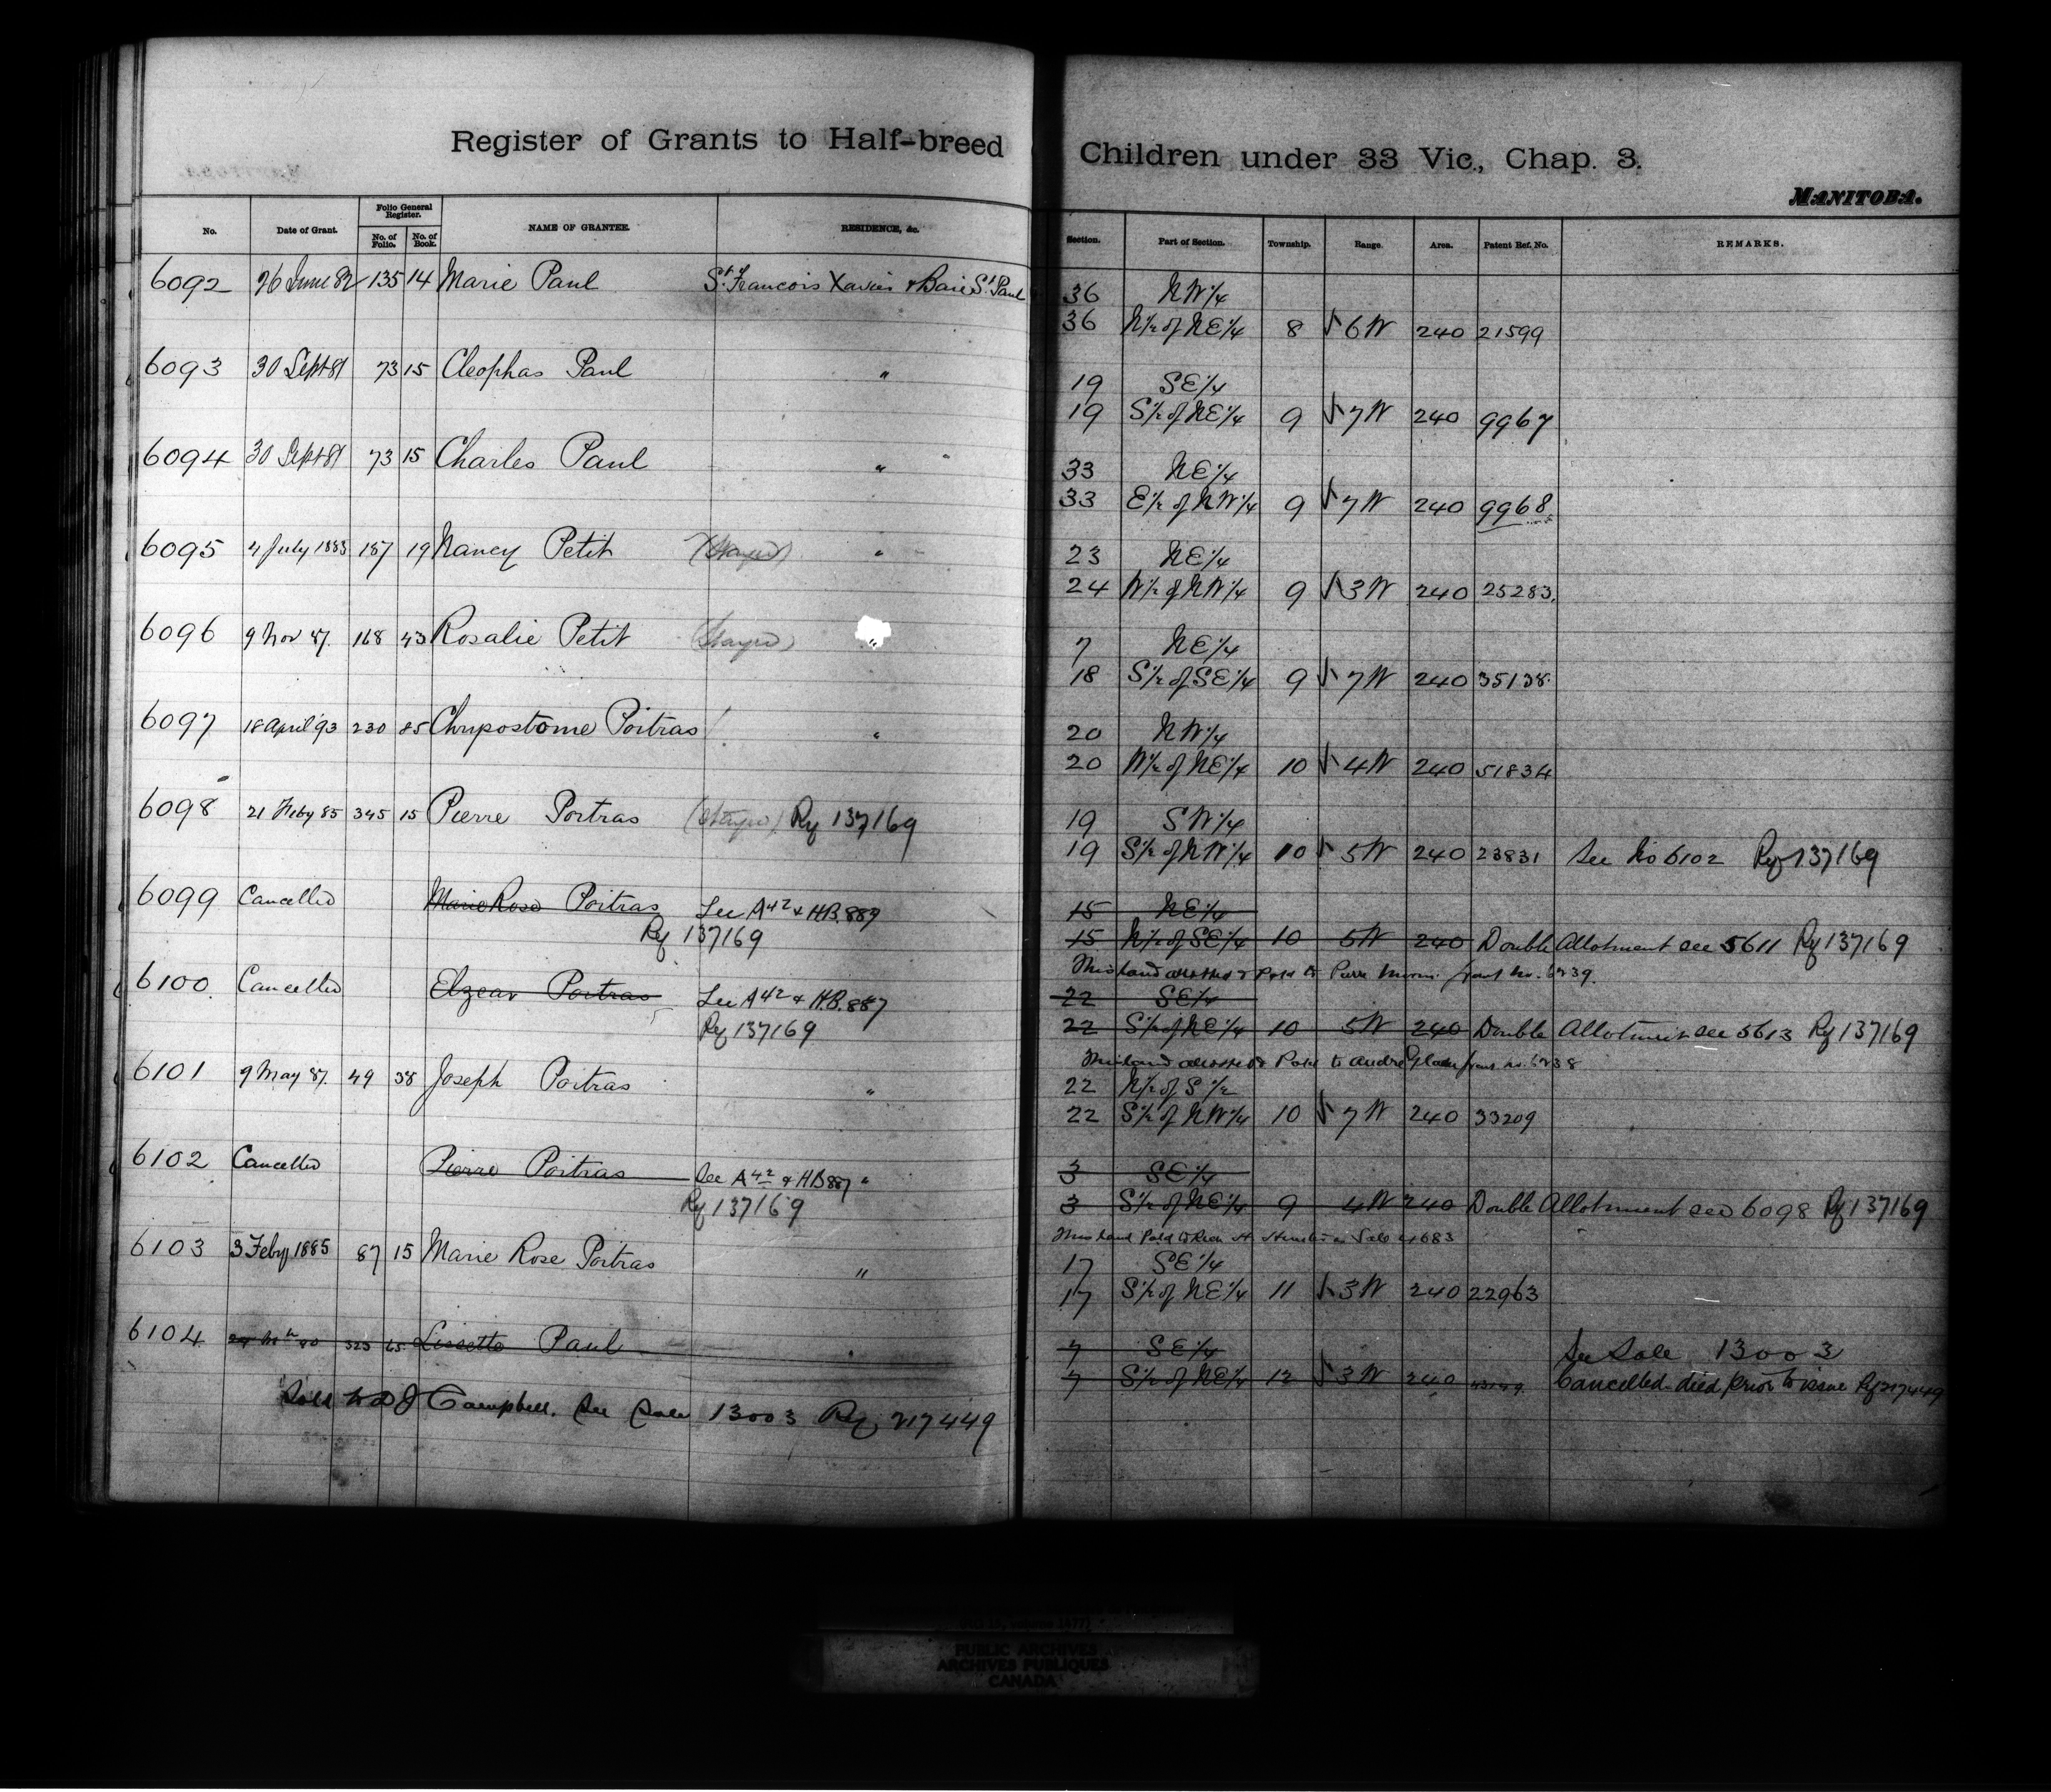 Register of Grants to Half-breed Children under 33 Vic., Chap. 3.
MANITOBA.
No. Date of Grant. Folio General Register. No. of Folio. No. of Book. NAME OF GRANTEE. RESIDENCE, &c. Section. Part of Section. Township. Range. Area. Patent Ref. No. REMARKS.
6092 26 June 82 135 14 Marie Paul St. Francois Xavier & Baie St. Paul 36 NW 1/4
36 N 1/2 of NE 1/4 8 6 W 240 21599
6093 30 Sept 81 73 15 Cleophas Paul " 19 SE 1/4
19 S 1/2 of NE 1/4 9 7 W 240 9967
6094 30 Sept 81 73 15 Charles Paul " 33 NE 1/4
33 E 1/2 of NW 1/4 9 7 W 240 9968
6095 4 July 1883 187 19 Nancy Petit " 23 NE 1/4
24 W 1/2 of NW 1/4 9 3 W 240 25283
6096 9 Nov 87. 168 43 Rosalie Petit " 7 NE 1/4
18 S 1/2 of SE 1/4 9 7 W 240 35138
6097 18 April 93 230 85 Chrypostome Poitras " 20 NW 1/4
20 W 1/2 of NE 1/4 10 4 W 240 51834
6098 21 Feby 85 345 15 Pierre Poitras Rf 137169 19 SW 1/4
19 S 1/2 of NW 1/4 10 5 W 240 23831 See No 6102 Rf 137169
6099 Cancelled Marie Rose Poitras See A42 & H.B. 889 15 NE 1/4
Rf 137169 15 N 1/2 of SE 1/4 10 5 W 240 Double Allotment see 5611 Rf 137169
This land allotted & Patd to Pierre
6100 Cancelled Elzear Poitras See A42 & H.B. 887 22 SE 1/4
Rf 137169 22 S 1/2 of NE 1/4 10 5 W 240 Double Allotment see 5613 Rf 137169
This land allotted & Patd to Andre
6101 9 May 87. 49 38 Joseph Poitras " 22 N 1/2 of S 1/2
22 S 1/2 of NW 1/4 10 7 W 240 33209
6102 Cancelled Pierre Poitras See A42 & HB 887 " 3 SE 1/4
Rf 137169 3 S 1/2 of NE 1/4 9 4 W 240 Double Allotment see 6098 Rf 137169
This land Sale 4683
6103 3 Feby 1885 87 15 Marie Rose Poitras " 17 SE 1/4
17 S 1/2 of NE 1/4 11 3 W 240 22963
6104 Lissette Paul " 7 SE 1/4 See Sale 13003
7 S 1/2 of NE 1/4 12 3 W 240 Cancelled died prior to issue Rf 217449
Sold to D J Campbell. See Sale 13003 Rf 217449
PUBLIC ARCHIVES
ARCHIVES PUBLIQUES
CANADA